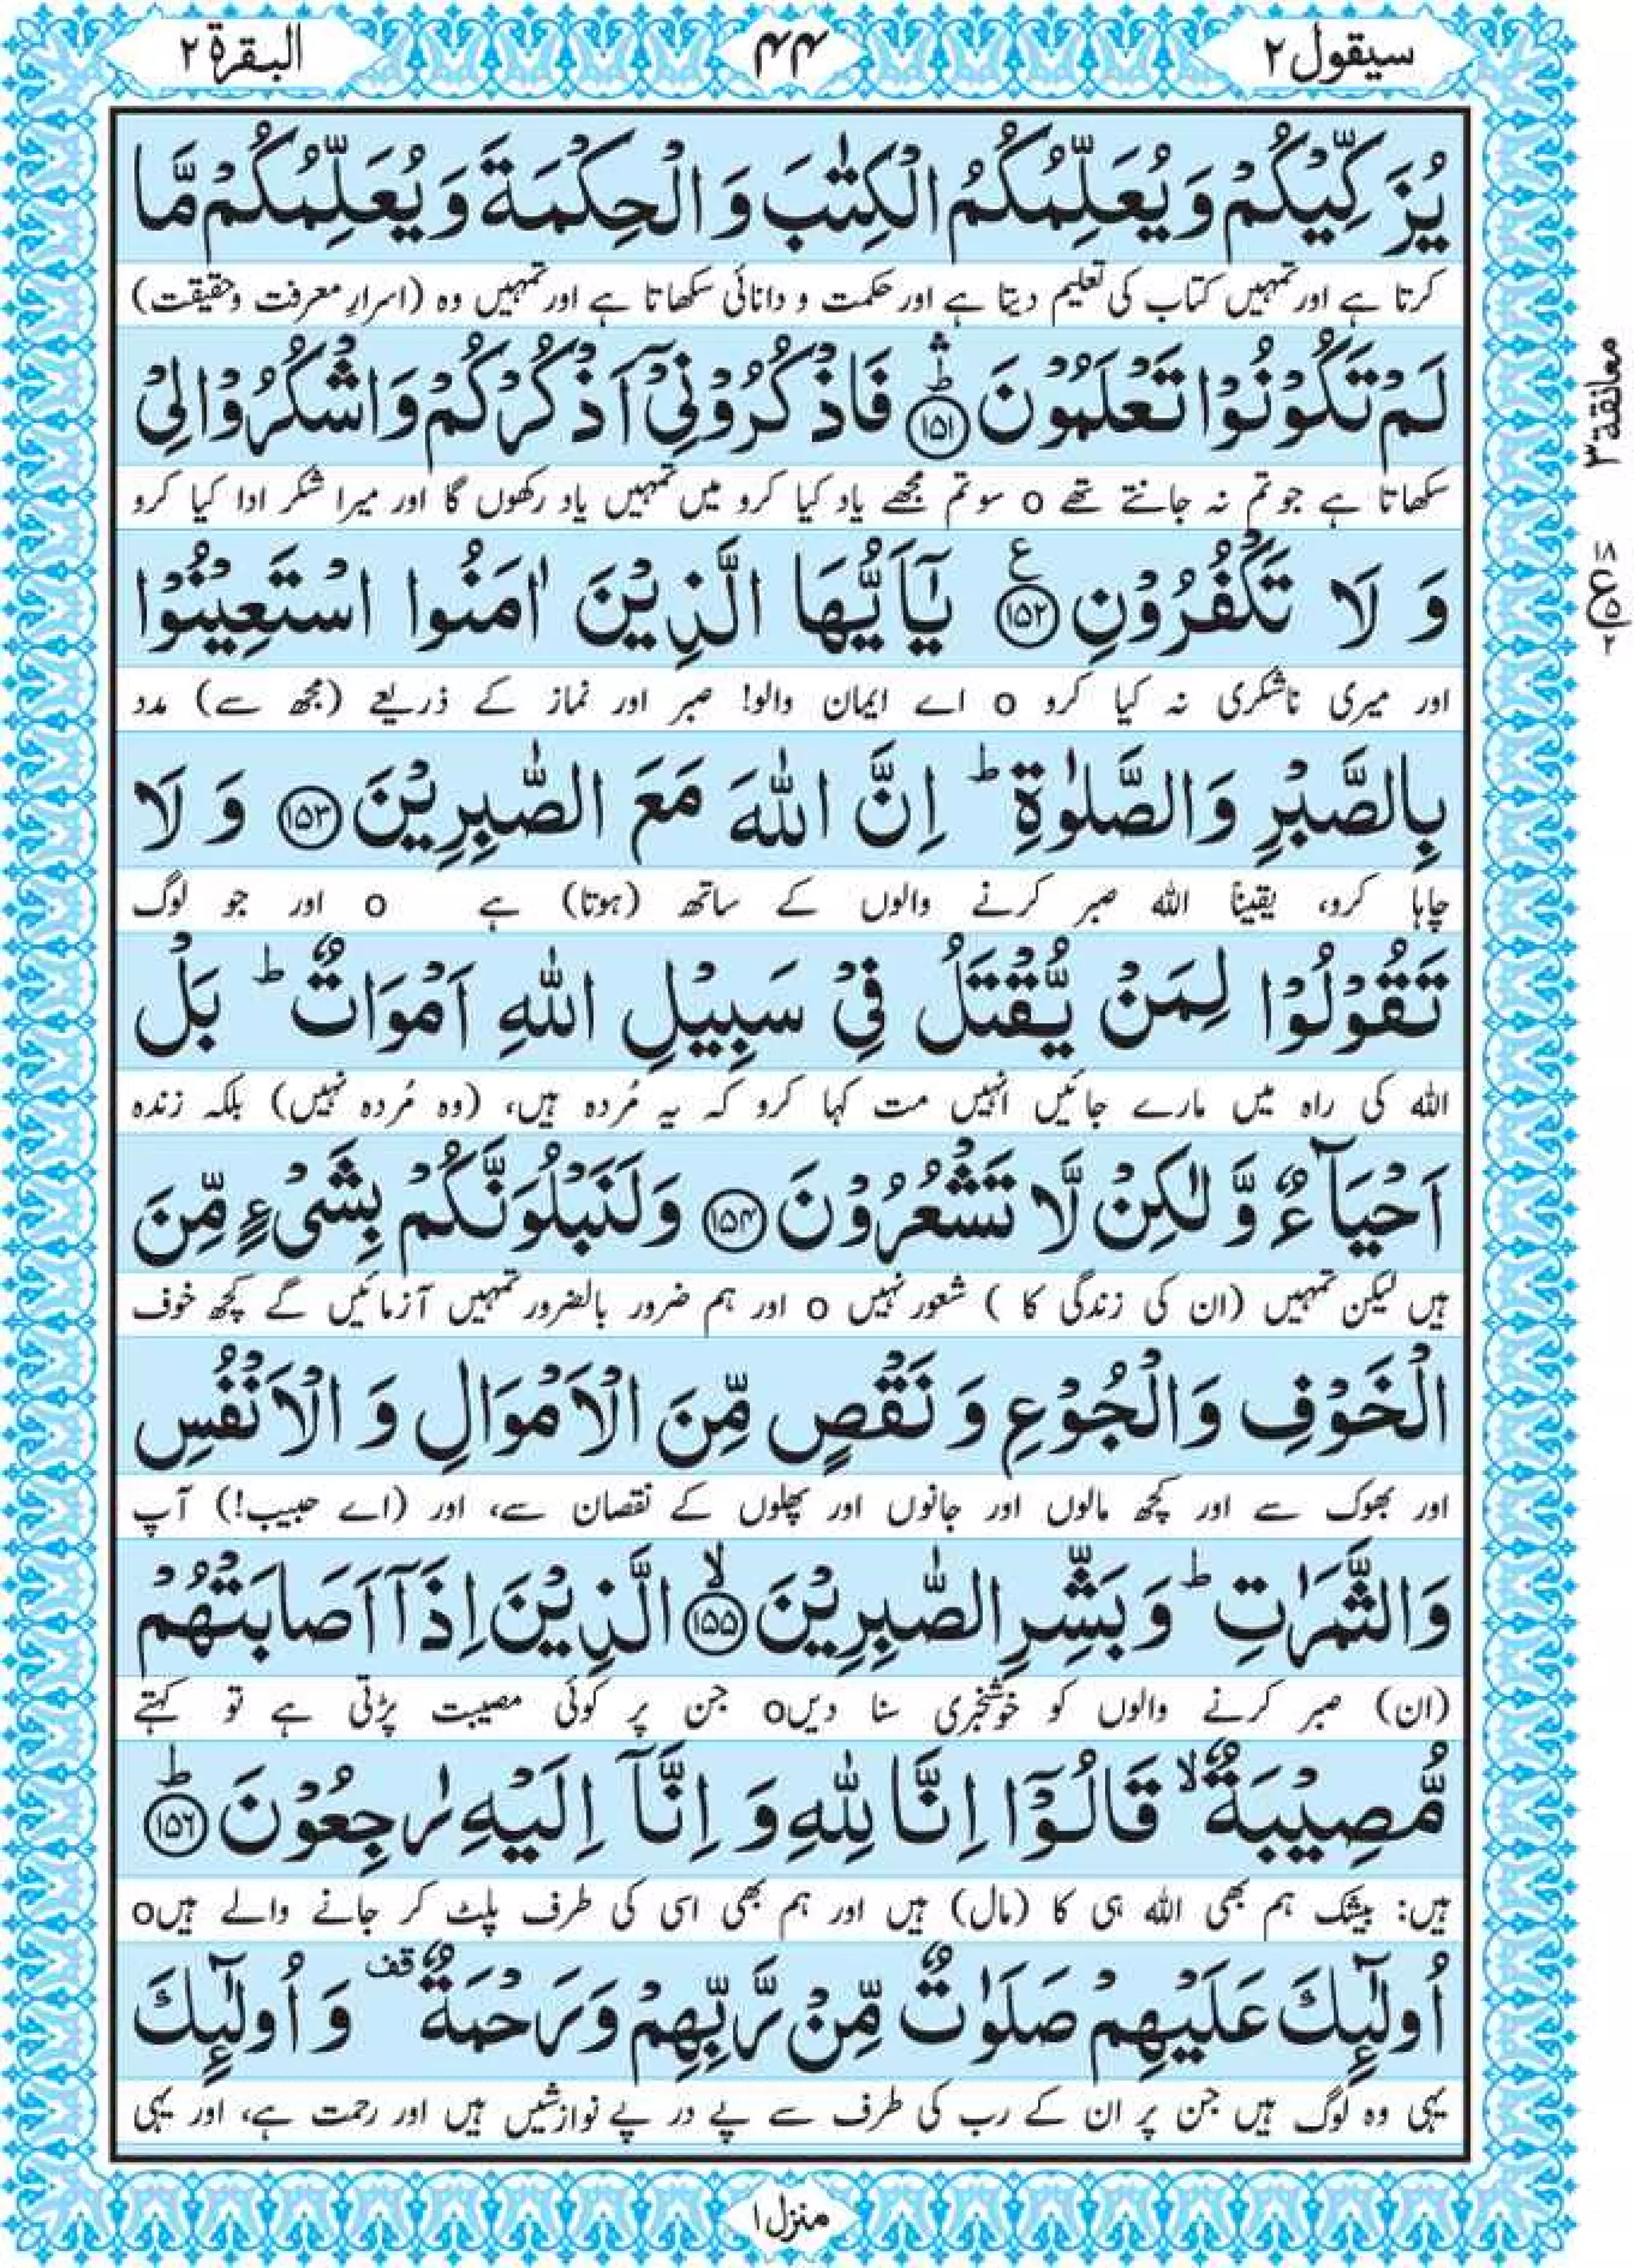 سیقول ٢
۴۴
البقرة ٢
یُزَكِّیْكُمْ وَیُعَلِّمُكُمُ الْكِتٰبَ وَ الْحِكْمَةَ وَیُعَلِّمُكُمْ مَّا
کرتا ہے اور تمہیں کتاب کی تعلیم دیتا ہے اور حکمت و دانائی سکھاتا ہے اور تمہیں وہ (اسرارِ معرفت و حقیقت)
لَمْ تَكُوْنُوْا تَعْلَمُوْنَ ؕۛ ﴿۱۵۱﴾ فَاذْكُرُوْنِیْۤ اَذْكُرْكُمْ وَاشْكُرُوْا لِیْ
سکھاتا ہے جو تم نہ جانتے تھے o سو تم مجھے یاد کیا کرو میں تمہیں یاد رکھوں گا اور میرا شکر ادا کیا کرو
معانقة ٣
وَ لَا تَكْفُرُوْنِ ﴿۱۵۲﴾ ع یٰۤاَیُّهَا الَّذِیْنَ اٰمَنُوا اسْتَعِیْنُوْا
١٨ ع ٥ ٢
اور میری ناشکری نہ کیا کرو o اے ایمان والو! صبر اور نماز کے ذریعے (مجھ سے) مدد
بِالصَّبْرِ وَالصَّلٰوةِ ؕ اِنَّ اللّٰهَ مَعَ الصّٰبِرِیْنَ ﴿۱۵۳﴾ وَ لَا
چاہا کرو، یقیناً اللہ صبر کرنے والوں کے ساتھ (ہوتا) ہے o اور جو لوگ
تَقُوْلُوْا لِمَنْ یُّقْتَلُ فِیْ سَبِیْلِ اللّٰهِ اَمْوَاتٌ ؕ بَلْ
اللہ کی راہ میں مارے جائیں انہیں مت کہا کرو کہ یہ مُردہ ہیں، (وہ مُردہ نہیں) بلکہ زندہ
اَحْیَآءٌ وَّ لٰكِنْ لَّا تَشْعُرُوْنَ ﴿۱۵۴﴾ وَلَنَبْلُوَنَّكُمْ بِشَیْءٍ مِّنَ
ہیں لیکن تمہیں (ان کی زندگی کا ) شعور نہیں o اور ہم ضرور بالضرور تمہیں آزمائیں گے کچھ خوف
الْخَوْفِ وَالْجُوْعِ وَ نَقْصٍ مِّنَ الْاَمْوَالِ وَ الْاَنْفُسِ
اور بھوک سے اور کچھ مالوں اور جانوں اور پھلوں کے نقصان سے، اور (اے حبیب!) آپ
وَالثَّمَرٰتِ ؕ وَبَشِّرِ الصّٰبِرِیْنَ ۙ﴿۱۵۵﴾ الَّذِیْنَ اِذَاۤ اَصَابَتْهُمْ
(ان) صبر کرنے والوں کو خوشخبری سنا دیںo جن پر کوئی مصیبت پڑتی ہے تو کہتے
مُّصِیْبَةٌ ۙ قَالُوْۤا اِنَّا لِلّٰهِ وَ اِنَّاۤ اِلَیْهِ رٰجِعُوْنَ ؕ﴿۱۵۶﴾
ہیں: بیشک ہم بھی اللہ ہی کا (مال) ہیں اور ہم بھی اسی کی طرف پلٹ کر جانے والے ہیںo
اُولٰٓىِٕكَ عَلَیْهِمْ صَلَوٰتٌ مِّنْ رَّبِّهِمْ وَرَحْمَةٌ ۫ قف وَ اُولٰٓىِٕكَ
یہی وہ لوگ ہیں جن پر ان کے رب کی طرف سے پے در پے نوازشیں ہیں اور رحمت ہے، اور یہی
منزل ١